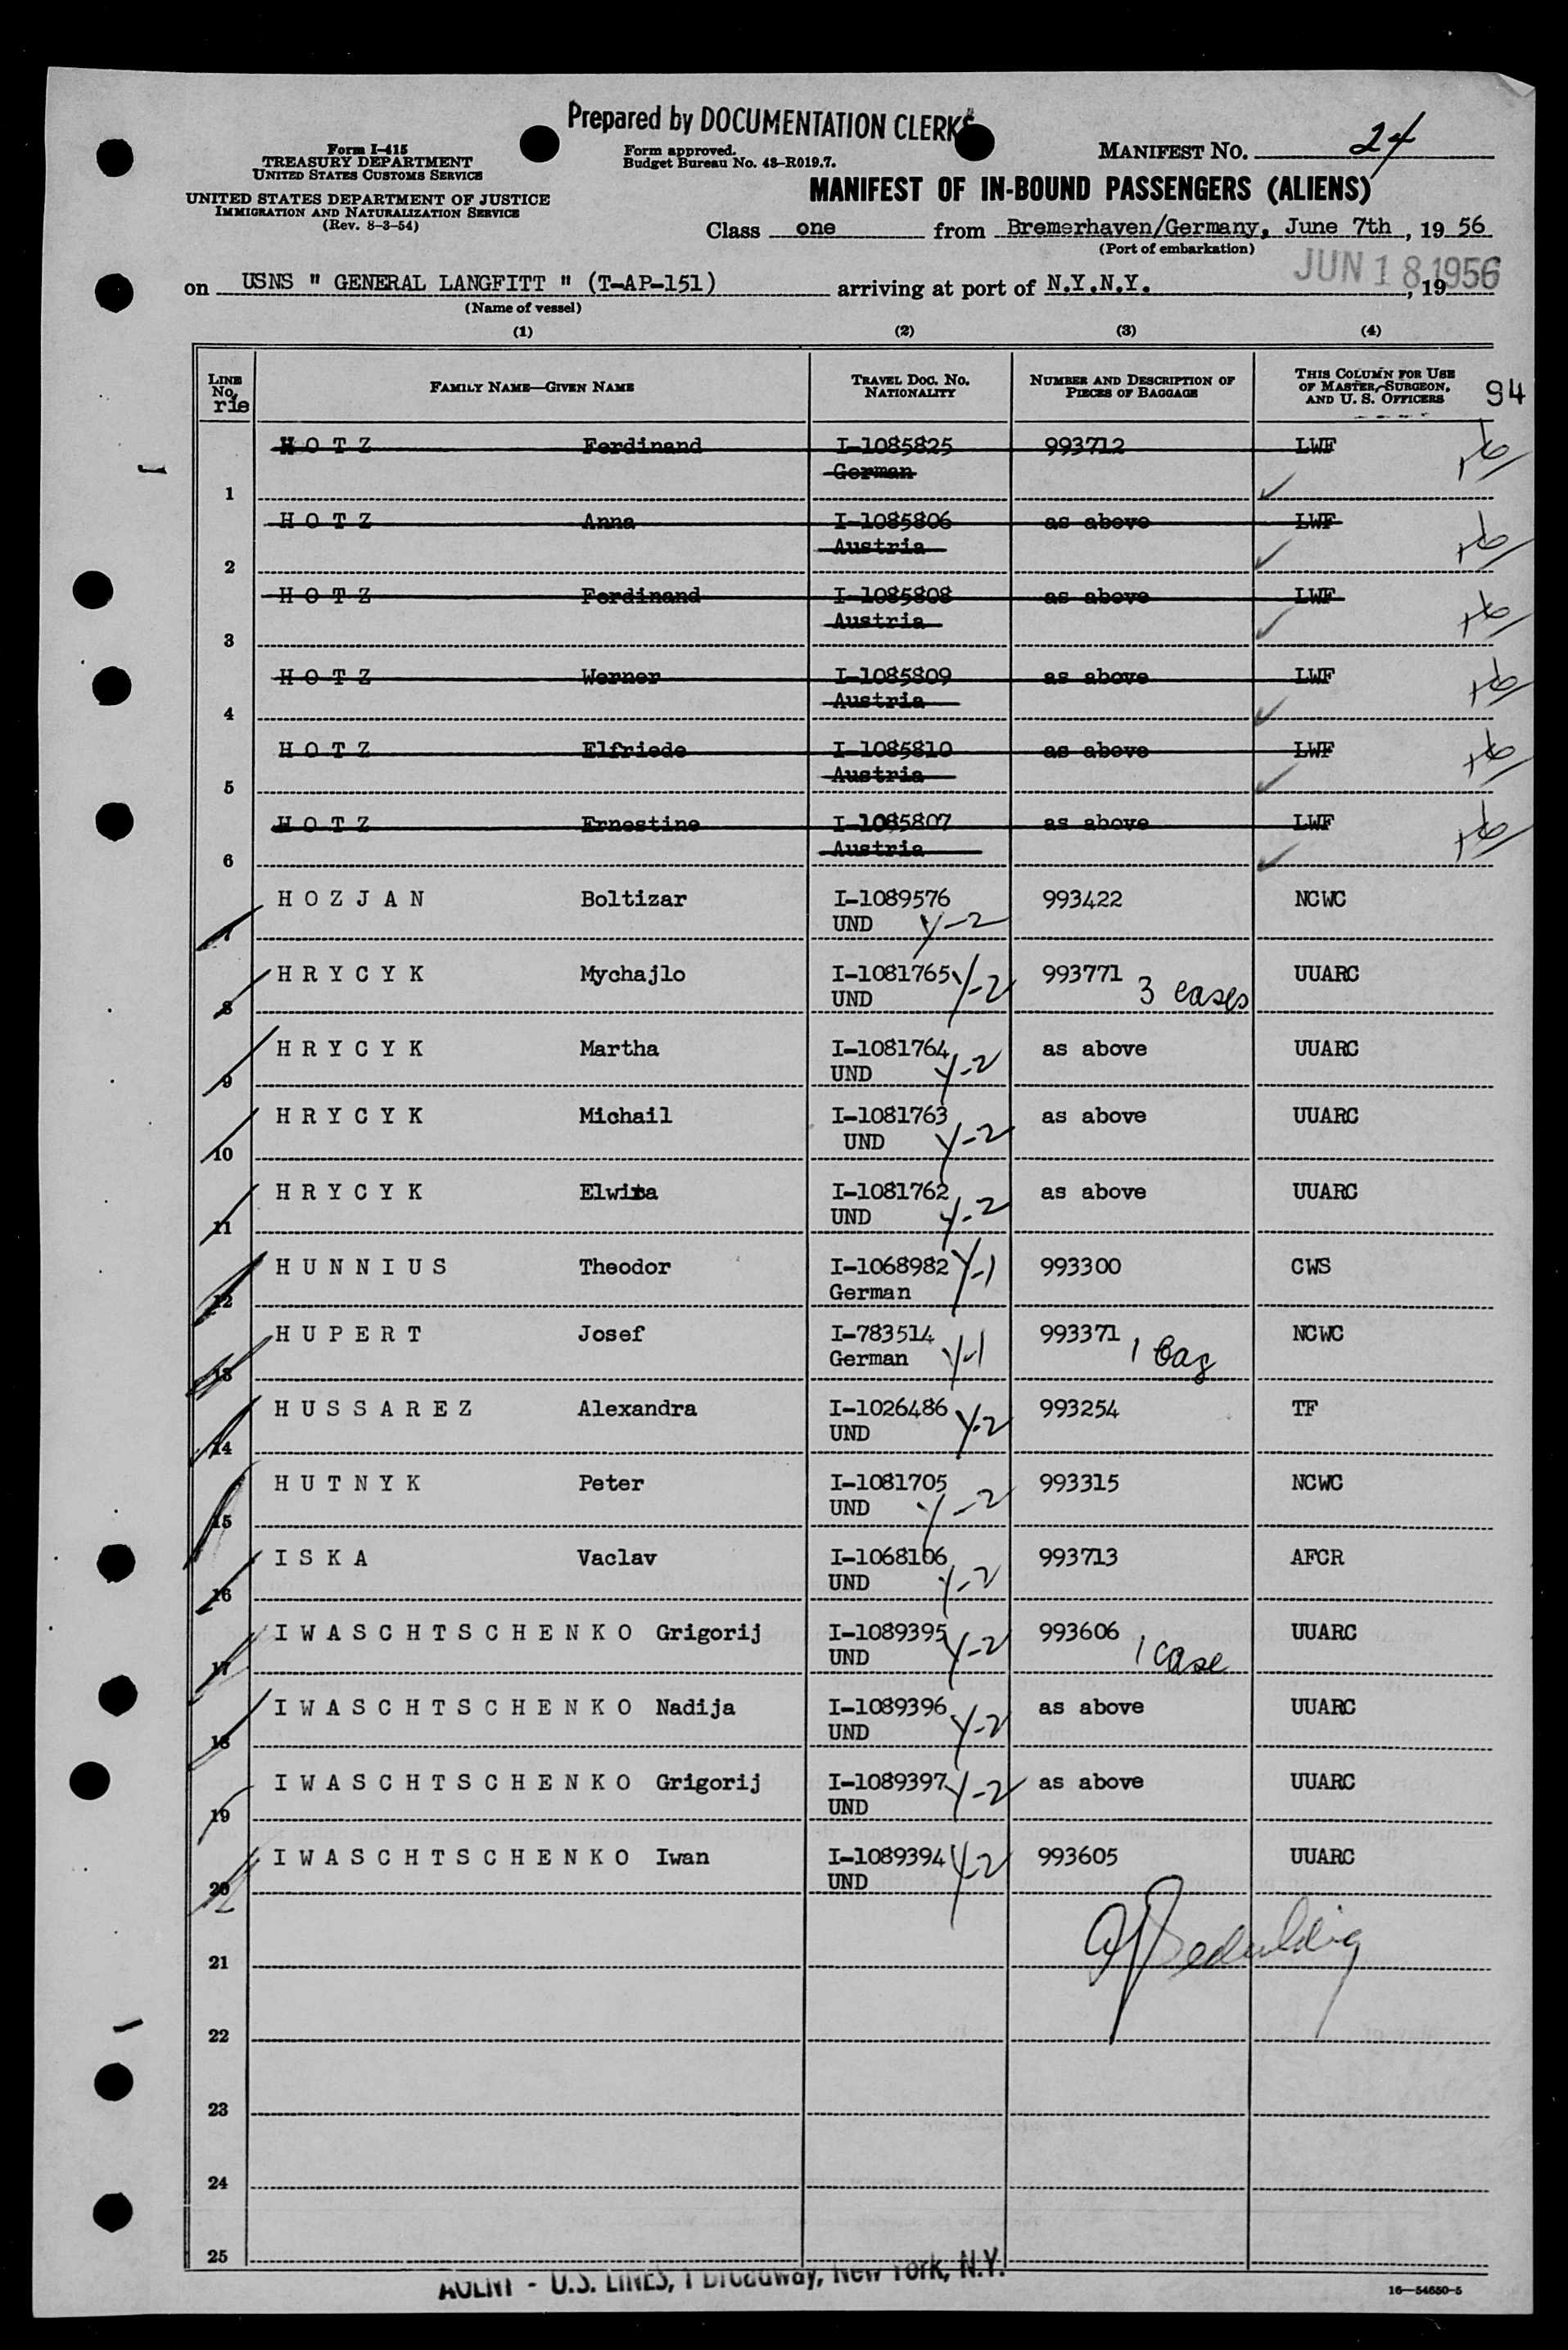 Prepared by DOCUMENTATION CLERKS
Form I-415
TREASURY DEPARTMENT
UNITED STATES CUSTOMS SERVICE
UNITED STATES DEPARTMENT OF JUSTICE
IMMIGRATION AND NATURALIZATION SERVICE
(Rev. 8-3-54)
Form approved.
Budget Bureau No. 43-R019.7.
MANIFEST NO. 24
MANIFEST OF IN-BOUND PASSENGERS (ALIENS)
Class one from Bremerhaven/Germany, June 7th, 19 56
(Port of embarkation)
on USNS " GENERAL LANGFITT " (T-AP-151) arriving at port of N.Y.N.Y. JUN 18 1956, 19
(Name of vessel)
(1) (2) (3) (4)
LINE No. FAMILY NAME—GIVEN NAME TRAVEL DOC. No. NATIONALITY NUMBER AND DESCRIPTION OF PIECES OF BAGGAGE THIS COLUMN FOR USE OF MASTER, SURGEON, AND U. S. OFFICERS 94
rie
H O T Z Ferdinand I-1085825 993712 LWF
German
1
H O T Z Anna I-1085806 as above LWF
Austria
2
H O T Z Ferdinand I-1085808 as above LWF
Austria
3
H O T Z Werner I-1085809 as above LWF
Austria
4
H O T Z Elfriede I-1085810 as above LWF
Austria
5
H O T Z Ernestine I-1085807 as above LWF
Austria
6
H O Z J A N Boltizar I-1089576 993422 NCWC
UND Y-2
7
H R Y C Y K Mychajlo I-1081765 Y-2 993771 3 cases UUARC
UND
8
H R Y C Y K Martha I-1081764 as above UUARC
UND Y-2
9
H R Y C Y K Michail I-1081763 as above UUARC
UND Y-2
10
H R Y C Y K Elwira I-1081762 as above UUARC
UND Y-2
11
H U N N I U S Theodor I-1068982 Y-1 993300 CWS
German
12
H U P E R T Josef I-783514 993371 1 bag NCWC
German Y-1
13
H U S S A R E Z Alexandra I-1026486 Y-2 993254 TF
UND
14
H U T N Y K Peter I-1081705 993315 NCWC
UND Y-2
15
I S K A Vaclav I-1068106 993713 AFCR
UND Y-2
16
I W A S C H T S C H E N K O Grigorij I-1089395 Y-2 993606 1 case UUARC
UND
17
I W A S C H T S C H E N K O Nadija I-1089396 as above UUARC
UND Y-2
18
I W A S C H T S C H E N K O Grigorij I-1089397 Y-2 as above UUARC
UND
19
I W A S C H T S C H E N K O Iwan I-1089394 Y-2 993605 UUARC
UND
20
21
22
23
24
25
AGENT - U.S. LINES, 1 Broadway, New York, N.Y.
16—54650-5